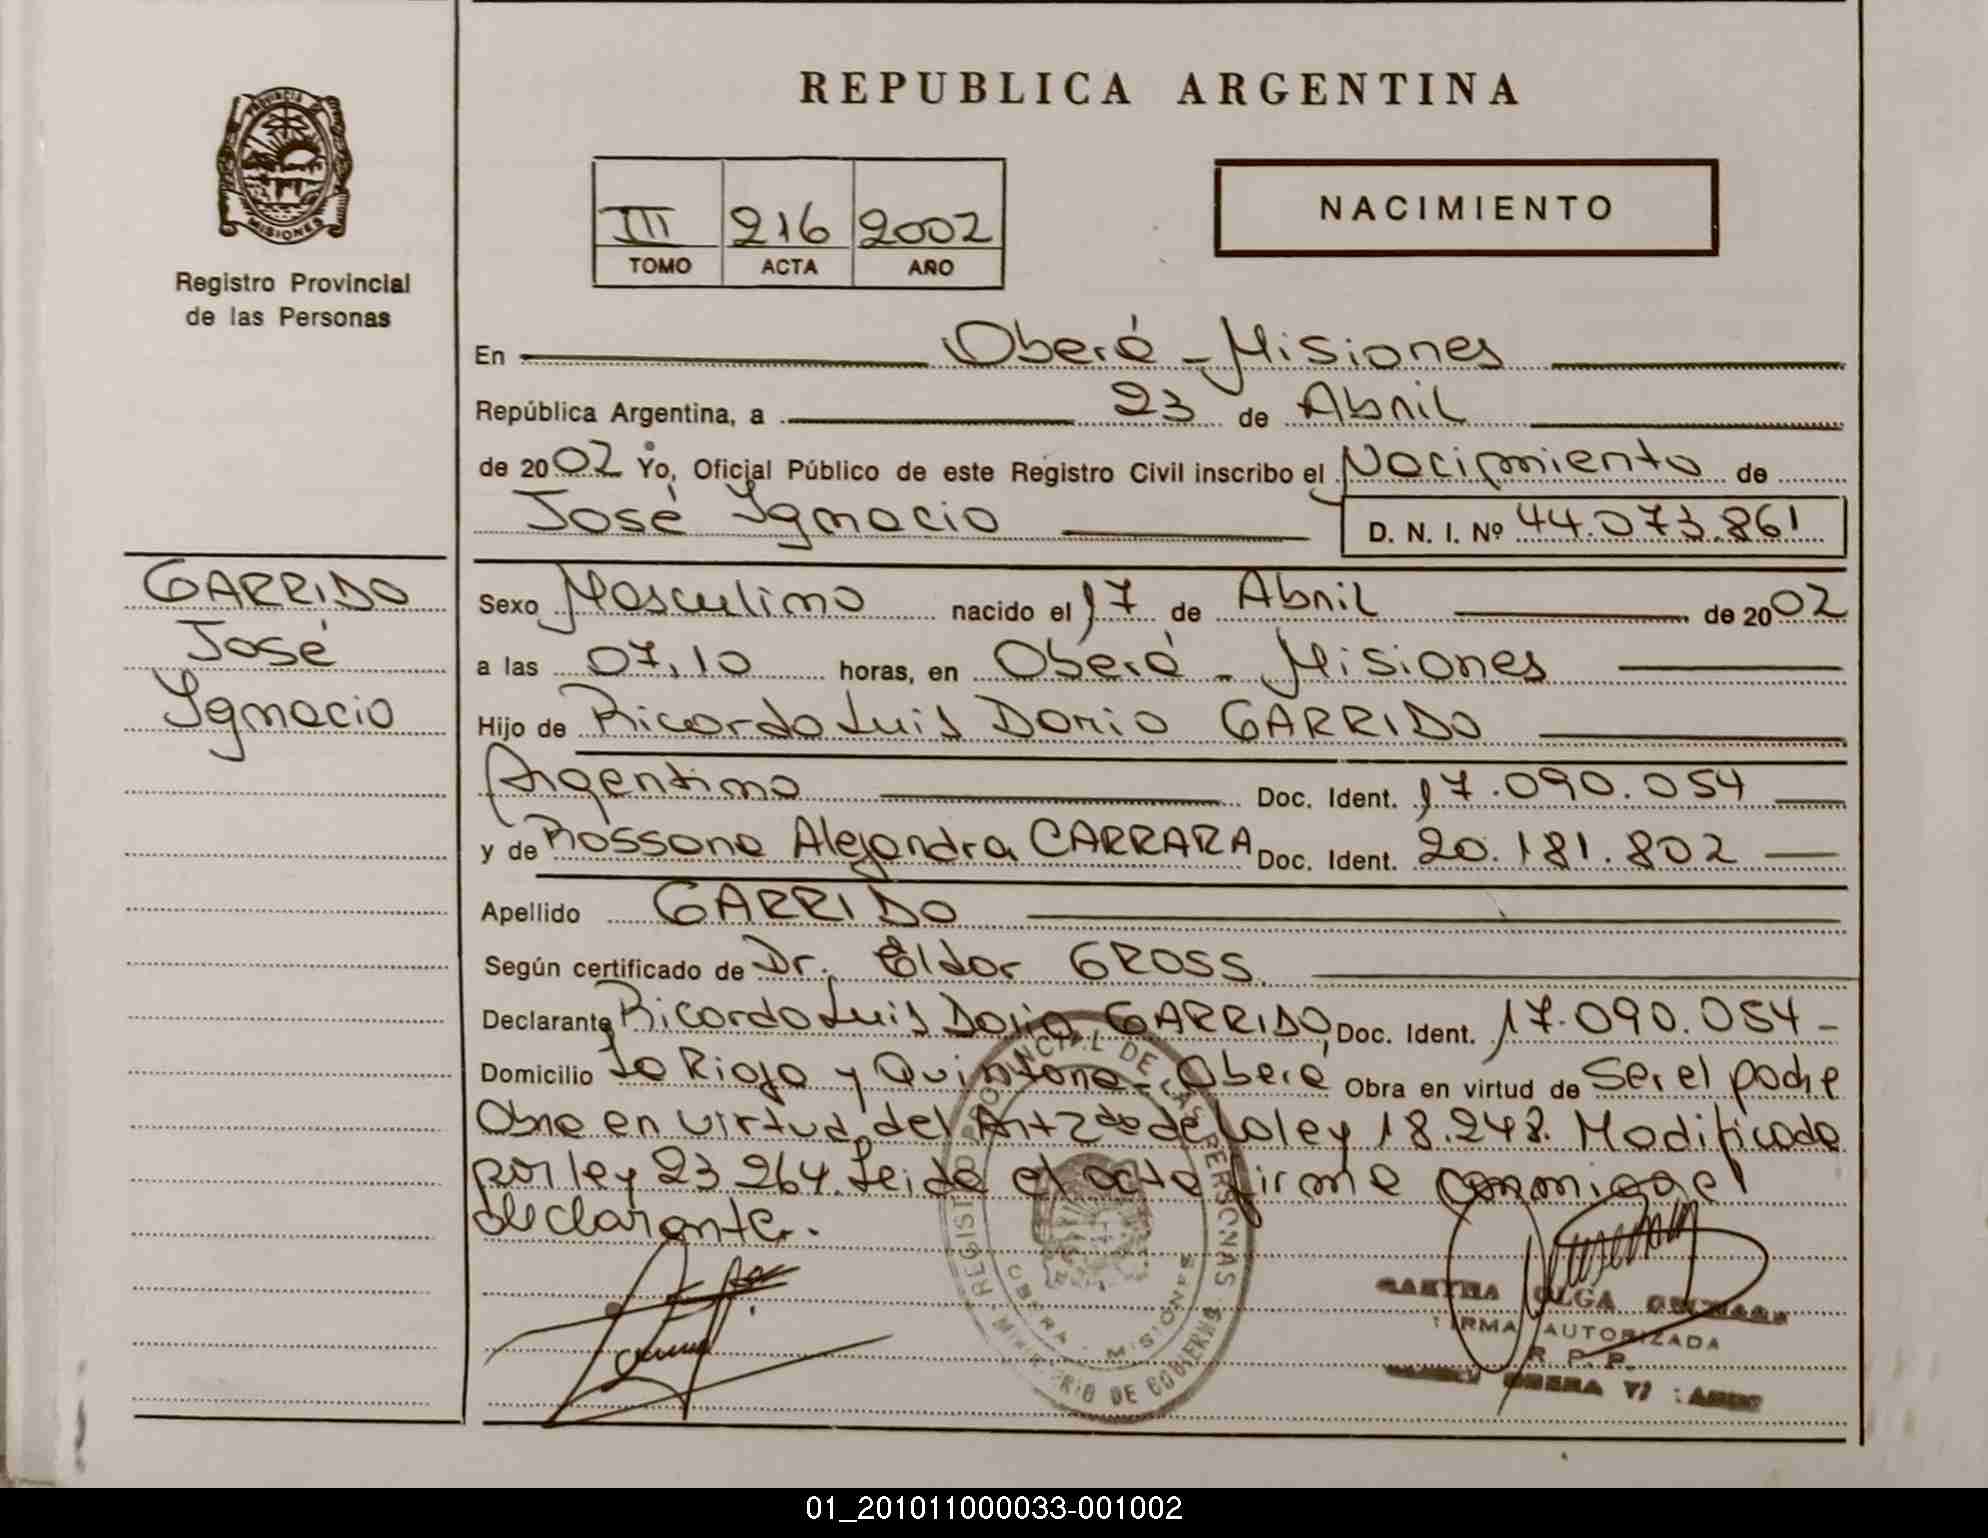 PROVINCIA
MISIONES
Registro Provincial
de las Personas
GARRIDO
José
Ignacio
REPUBLICA ARGENTINA
III 216 2002
TOMO ACTA AÑO
NACIMIENTO
En Oberá - Misiones
República Argentina, a 23 de Abril
de 2002 Yo, Oficial Público de este Registro Civil inscribo el Nacimiento de
José Ignacio D. N. I. Nº 44.073.861
Sexo Masculino nacido el 17 de Abril de 2002
a las 07,10 horas, en Oberá - Misiones
Hijo de Ricardo Luis Dario GARRIDO
Argentino Doc. Ident. 17.090.054
y de Rossana Alejandra CARRARA Doc. Ident. 20.181.802
Apellido GARRIDO
Según certificado de Dr. Eldor GROSS.
Declarante Ricardo Luis Dario GARRIDO, Doc. Ident. 17.090.054 -
Domicilio La Rioja y Quintana - Oberá Obra en virtud de Ser el padre
Obra en virtud del Art 2do de la ley 18.248. Modificada
por ley 23 264. Leida el acta firma conmigo el
declarante.
REGISTRO PROVINCIAL DE LAS PERSONAS
OBERA - MISIONES
MINISTERIO DE GOBIERNO
OLGA
FIRMA AUTORIZADA
R. P. P.
OBERA
01_201011000033-001002